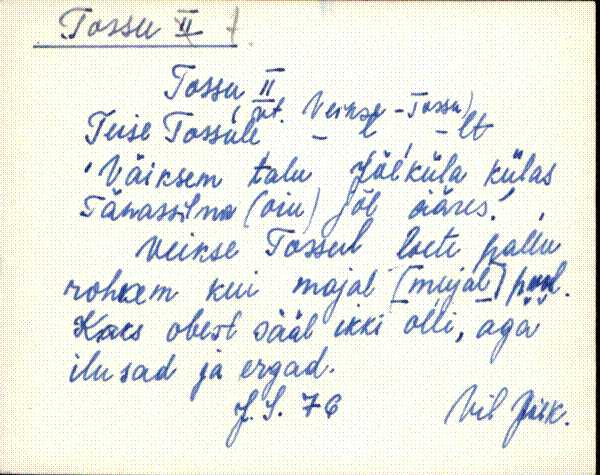 Tossu II
Tossu II
(vt. Veikse-Tossu)
Teise Tossule - l - lt
'Väiksem talu Jõeküla külas
Tänassilma (oiu) jõe ääres.'
Veikse Tossul loeti pallu
rohkem kui mujal [mujal] pool.
Kaks obest sääl ikki olli, aga
ilusad ja ergad.
J. S. 76 Vil